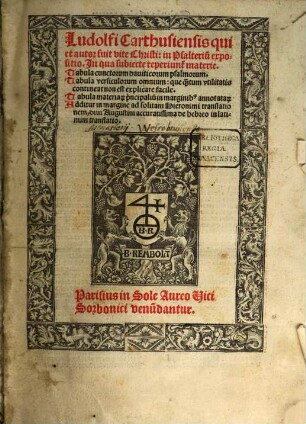 Ludolfi Carthusiensis qui
et autor fuit vite Christi: in Psalteriũ expo-
sitio. In qua subiecte reperiunt᷑ materie.
Tabula cunctorum dauiticorum psalmorum.
Tabula versiculorum omnium: que q̃tum vtilitatis
contineat non est explicare facile.
Tabula materiaꝝ p̃ncipaliũ in marginibꝰ annotataꝝ
Additur in margine ad solitam Hieronimi translatio
nem, diui Augustini accuratissima de hebreo in lati-
num translatio.
BIBLIOTHECA
REGIA
MONACENSIS.
B R
B·REMBOLT
Parisius in Sole Aureo Vici
Sorbonici venũdantur.